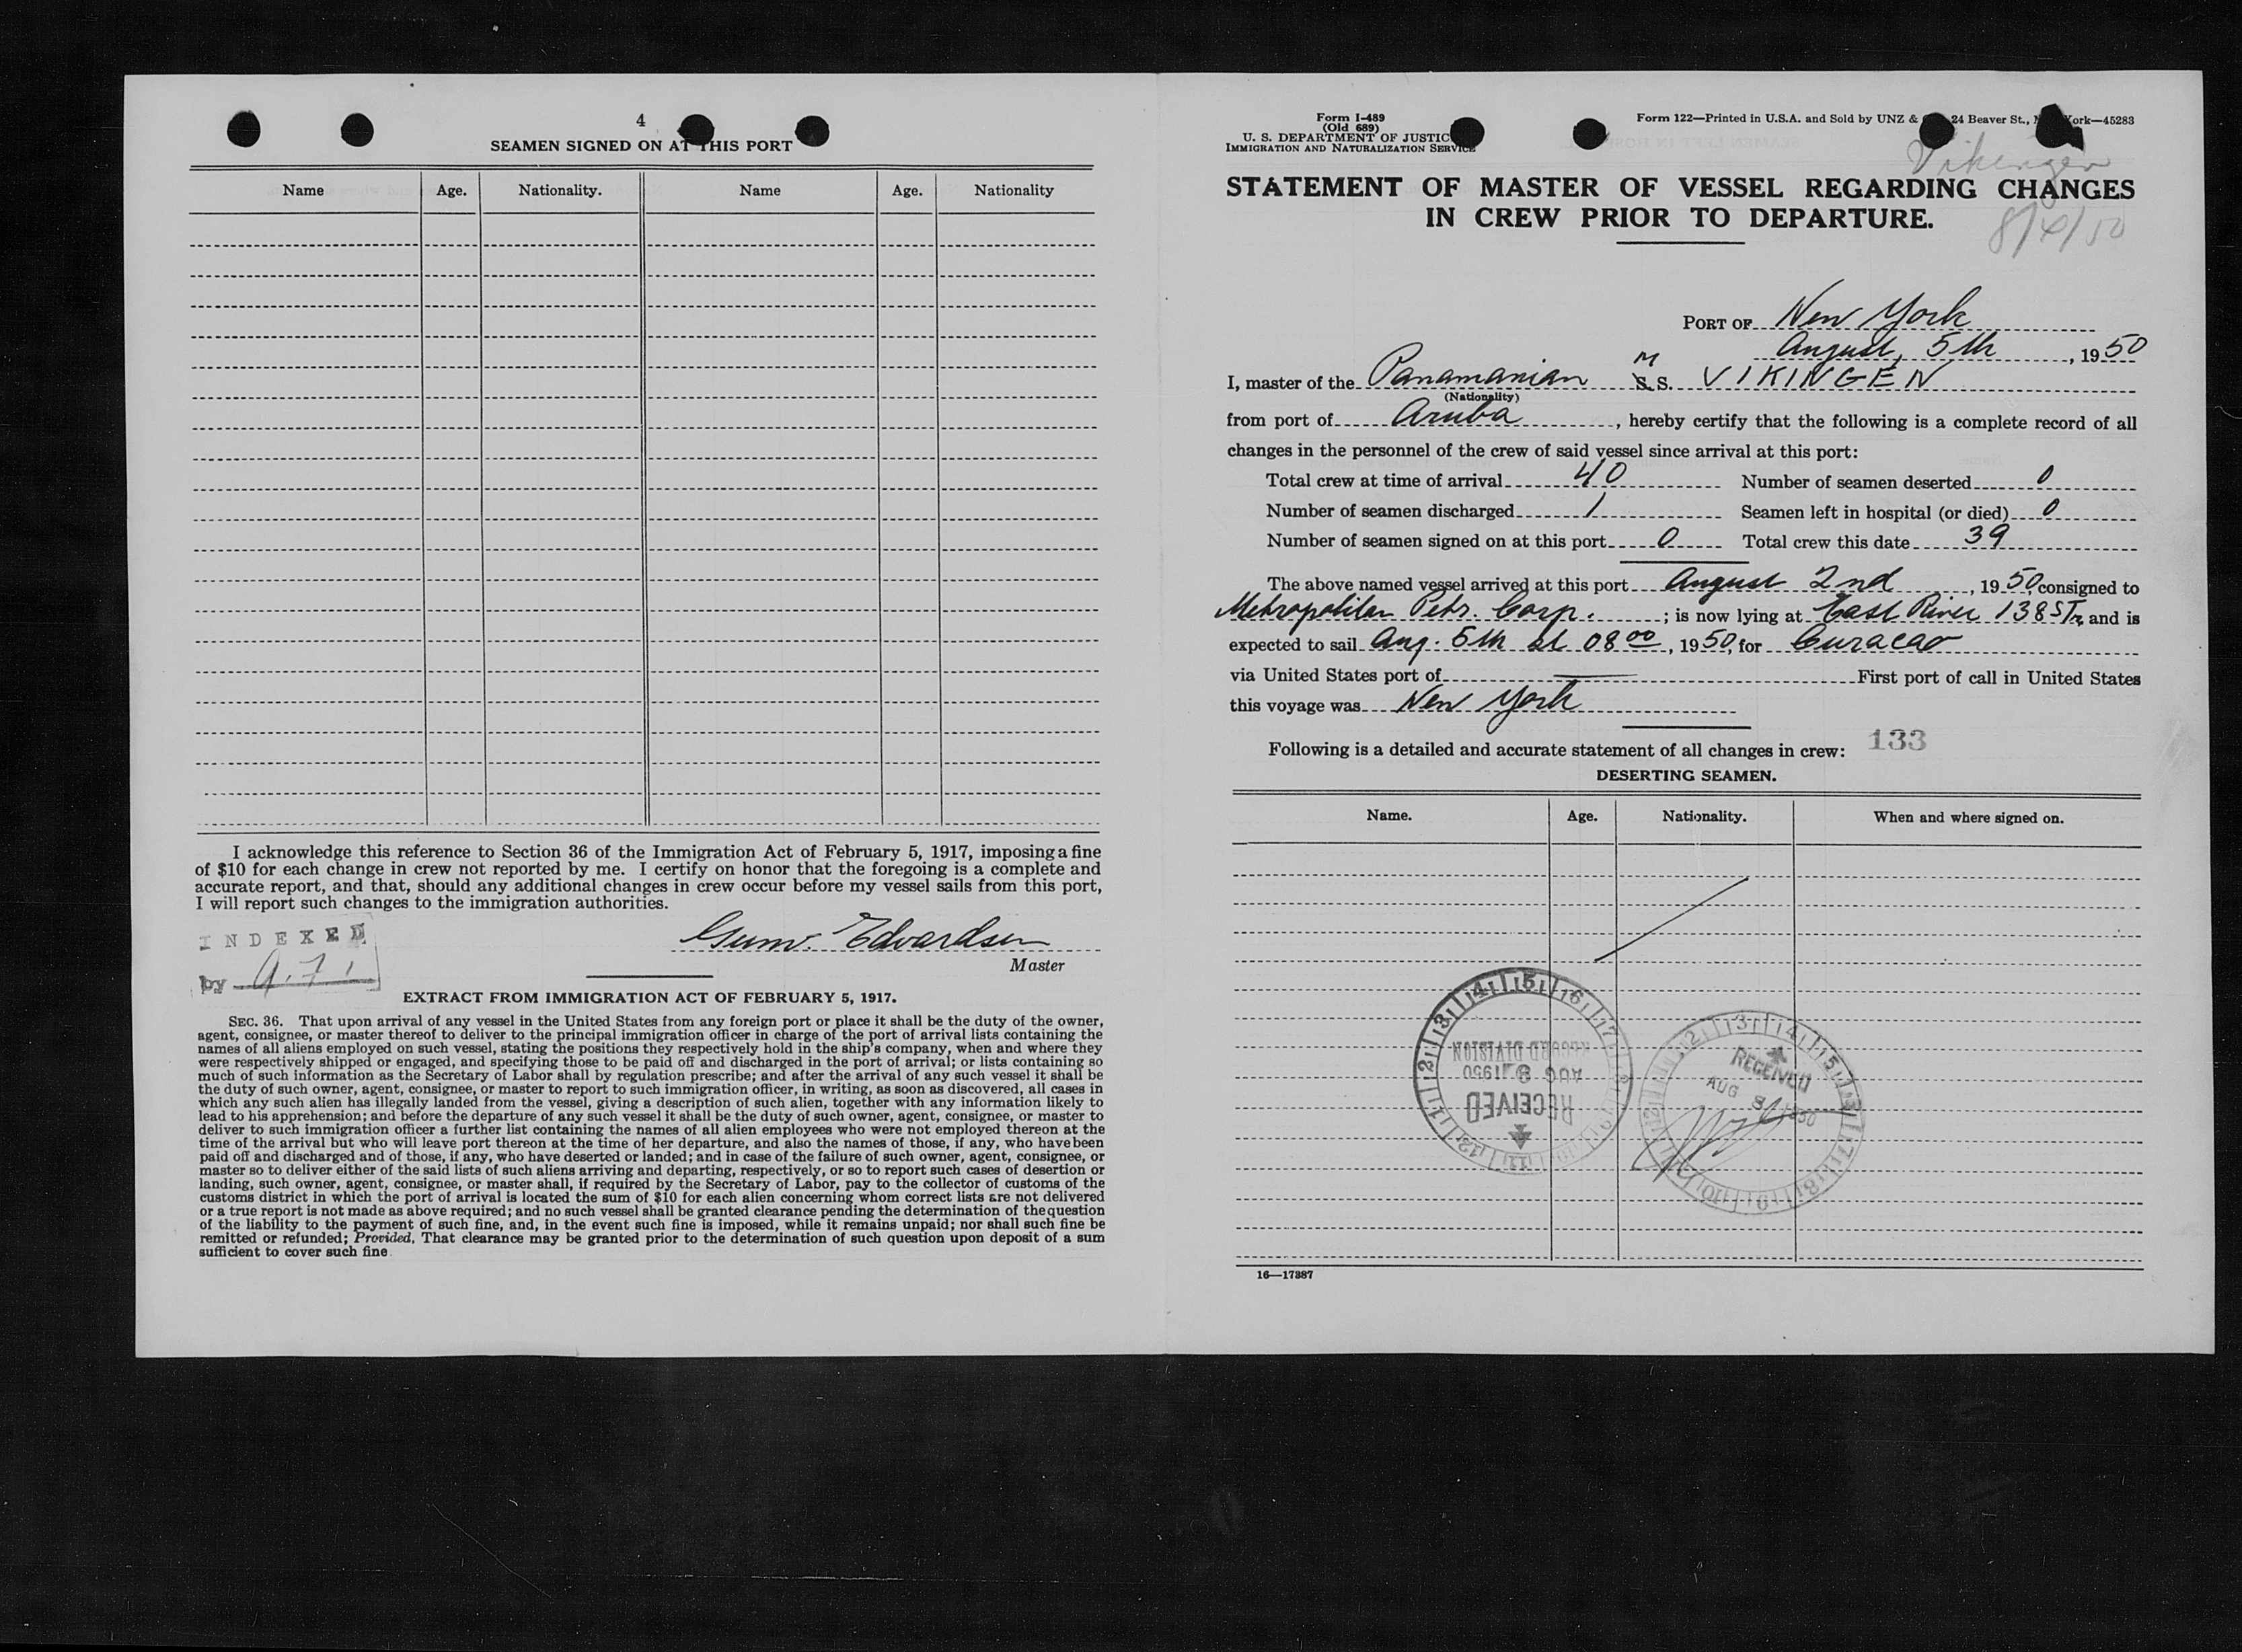 4
SEAMEN SIGNED ON AT THIS PORT
Name Age. Nationality. Name Age. Nationality
I acknowledge this reference to Section 36 of the Immigration Act of February 5, 1917, imposing a fine
of $10 for each change in crew not reported by me. I certify on honor that the foregoing is a complete and
accurate report, and that, should any additional changes in crew occur before my vessel sails from this port,
I will report such changes to the immigration authorities.
INDEXED
by
Gunv. Edvardsen
Master
EXTRACT FROM IMMIGRATION ACT OF FEBRUARY 5, 1917.
SEC. 36. That upon arrival of any vessel in the United States from any foreign port or place it shall be the duty of the owner,
agent, consignee, or master thereof to deliver to the principal immigration officer in charge of the port of arrival lists containing the
names of all aliens employed on such vessel, stating the positions they respectively hold in the ship's company, when and where they
were respectively shipped or engaged, and specifying those to be paid off and discharged in the port of arrival; or lists containing so
much of such information as the Secretary of Labor shall by regulation prescribe; and after the arrival of any such vessel it shall be
the duty of such owner, agent, consignee, or master to report to such immigration officer, in writing, as soon as discovered, all cases in
which any such alien has illegally landed from the vessel, giving a description of such alien, together with any information likely to
lead to his apprehension; and before the departure of any such vessel it shall be the duty of such owner, agent, consignee, or master to
deliver to such immigration officer a further list containing the names of all alien employees who were not employed thereon at the
time of the arrival but who will leave port thereon at the time of her departure, and also the names of those, if any, who have been
paid off and discharged and of those, if any, who have deserted or landed; and in case of the failure of such owner, agent, consignee, or
master so to deliver either of the said lists of such aliens arriving and departing, respectively, or so to report such cases of desertion or
landing, such owner, agent, consignee, or master shall, if required by the Secretary of Labor, pay to the collector of customs of the
customs district in which the port of arrival is located the sum of $10 for each alien concerning whom correct lists are not delivered
or a true report is not made as above required; and no such vessel shall be granted clearance pending the determination of the question
of the liability to the payment of such fine, and, in the event such fine is imposed, while it remains unpaid; nor shall such fine be
remitted or refunded; Provided, That clearance may be granted prior to the determination of such question upon deposit of a sum
sufficient to cover such fine
Form I-489
(Old 689)
U. S. DEPARTMENT OF JUSTIC
IMMIGRATION AND NATURALIZATION SERVICE
Form 122—Printed in U.S.A. and Sold by UNZ & 24 Beaver St., York—45283
Vikingen
STATEMENT OF MASTER OF VESSEL REGARDING CHANGES
IN CREW PRIOR TO DEPARTURE.
8/4/50
PORT OF New York
August, 5th, 1950
I, master of the Panamanian M S. S. VIKINGEN
(Nationality)
from port of Aruba, hereby certify that the following is a complete record of all
changes in the personnel of the crew of said vessel since arrival at this port:
Total crew at time of arrival 40 Number of seamen deserted 0
Number of seamen discharged 1 Seamen left in hospital (or died) 0
Number of seamen signed on at this port 0 Total crew this date 39
The above named vessel arrived at this port August 2nd, 1950, consigned to
Metropolitan Petr. Corp.; is now lying at East River 138 STr, and is
expected to sail Aug. 5th at 08 00, 1950, for Curacao
via United States port of — First port of call in United States
this voyage was New York
Following is a detailed and accurate statement of all changes in crew: 133
DESERTING SEAMEN.
Name. Age. Nationality. When and where signed on.
RECEIVED
AUG 8 1950
RECORD DIVISION
RECEIVED
AUG 1950
16—17387